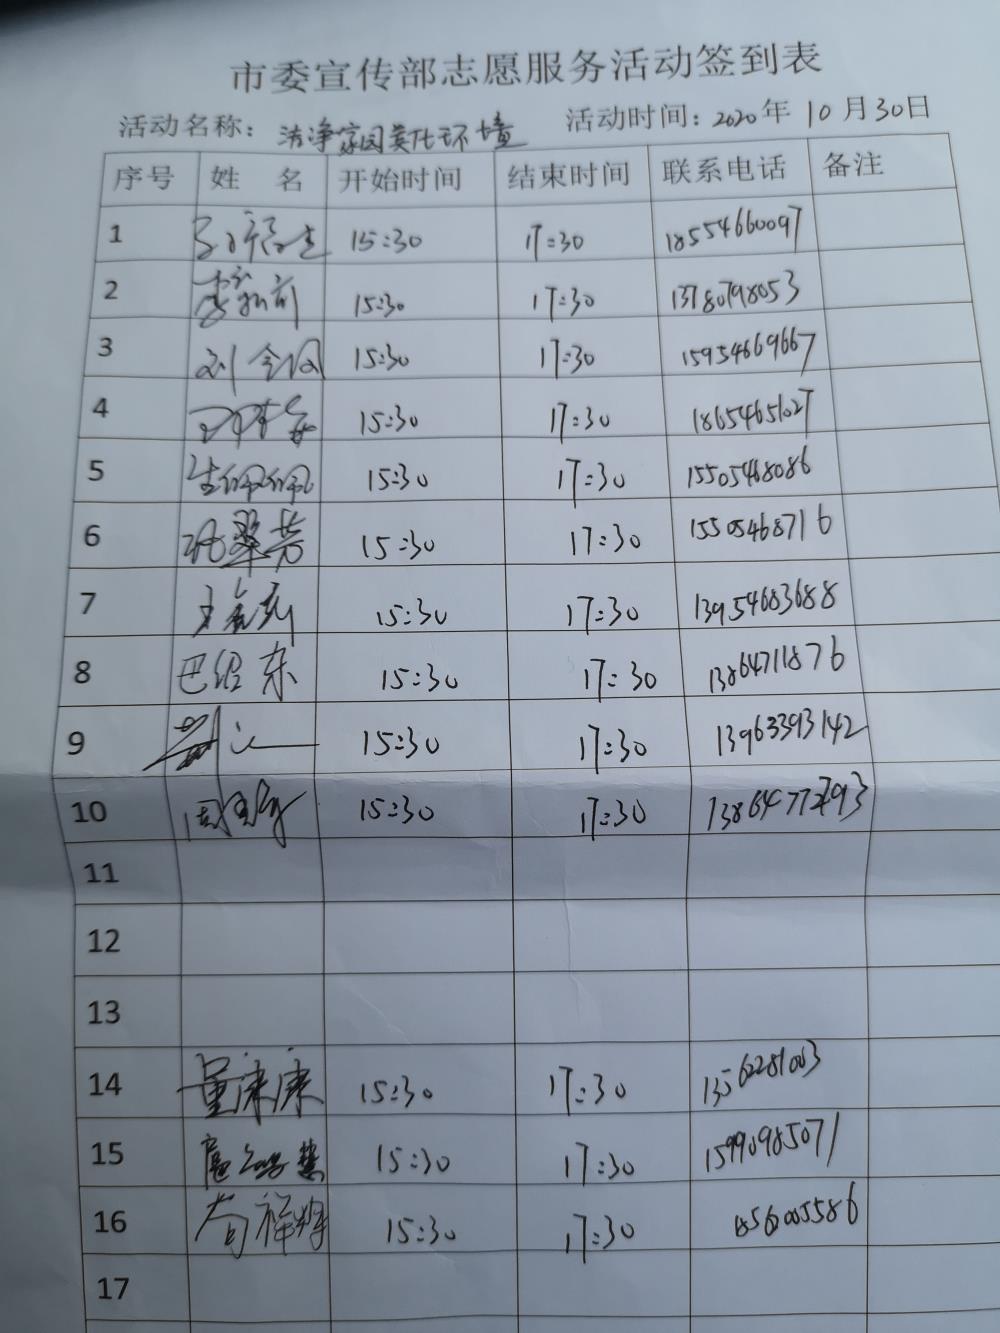 市委宣传部志愿服务活动签到表
活动名称: 洁净家园美化环境 活动时间: 2020年10月30日
序号 姓 名 开始时间 结束时间 联系电话 备注
1 15:30 17:30 18554660097
2 15:30 17:30 13780798053
3 刘 15:30 17:30 15954669667
4 15:30 17:30 18654651027
5 生佩佩 15:30 17:30 15505468086
6 翠芳 15:30 17:30 15505468716
7 王 15:30 17:30 13954683688
8 巴绍东 15:30 17:30 13864711876
9 15:30 17:30 13963393142
10 周 15:30 17:30 13864772793
11
12
13
14 董康康 15:30 17:30 13562281003
15 15:30 17:30 15990985071
16 苟祥辉 15:30 17:30
17